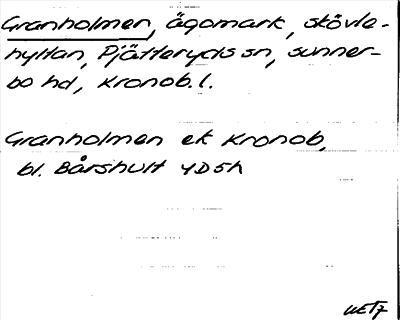 Granholmen, ägomark, skövle-
hyltan, Pjätteryds sn, sunner-
bo hd, Kronob. l.
Granholmen ek Kronob,
bl. Bårshult 4D5h